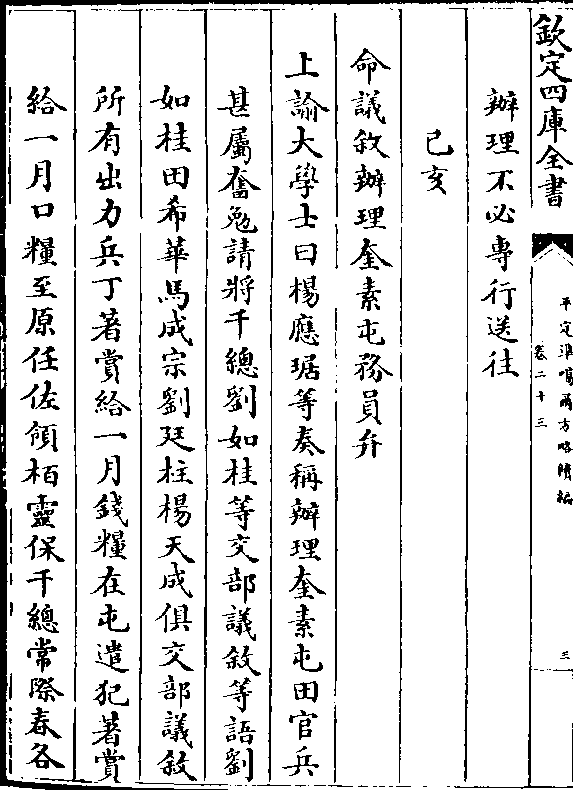 欽定四庫全書
平定準噶爾方略續編
卷二十三
三
辦理不必專行送往
己亥
命議敘辦理奎素屯務員弁
上諭大學士曰楊應琚等奏稱辦理奎素屯田官兵
甚屬奮勉請將千總劉如桂等交部議敘等語劉
如桂田希華馬成宗劉廷柱楊天成俱交部議敘
所有出力兵丁著賞給一月錢糧在屯遣犯著賞
給一月口糧至原任佐領栢靈保千總常際春各